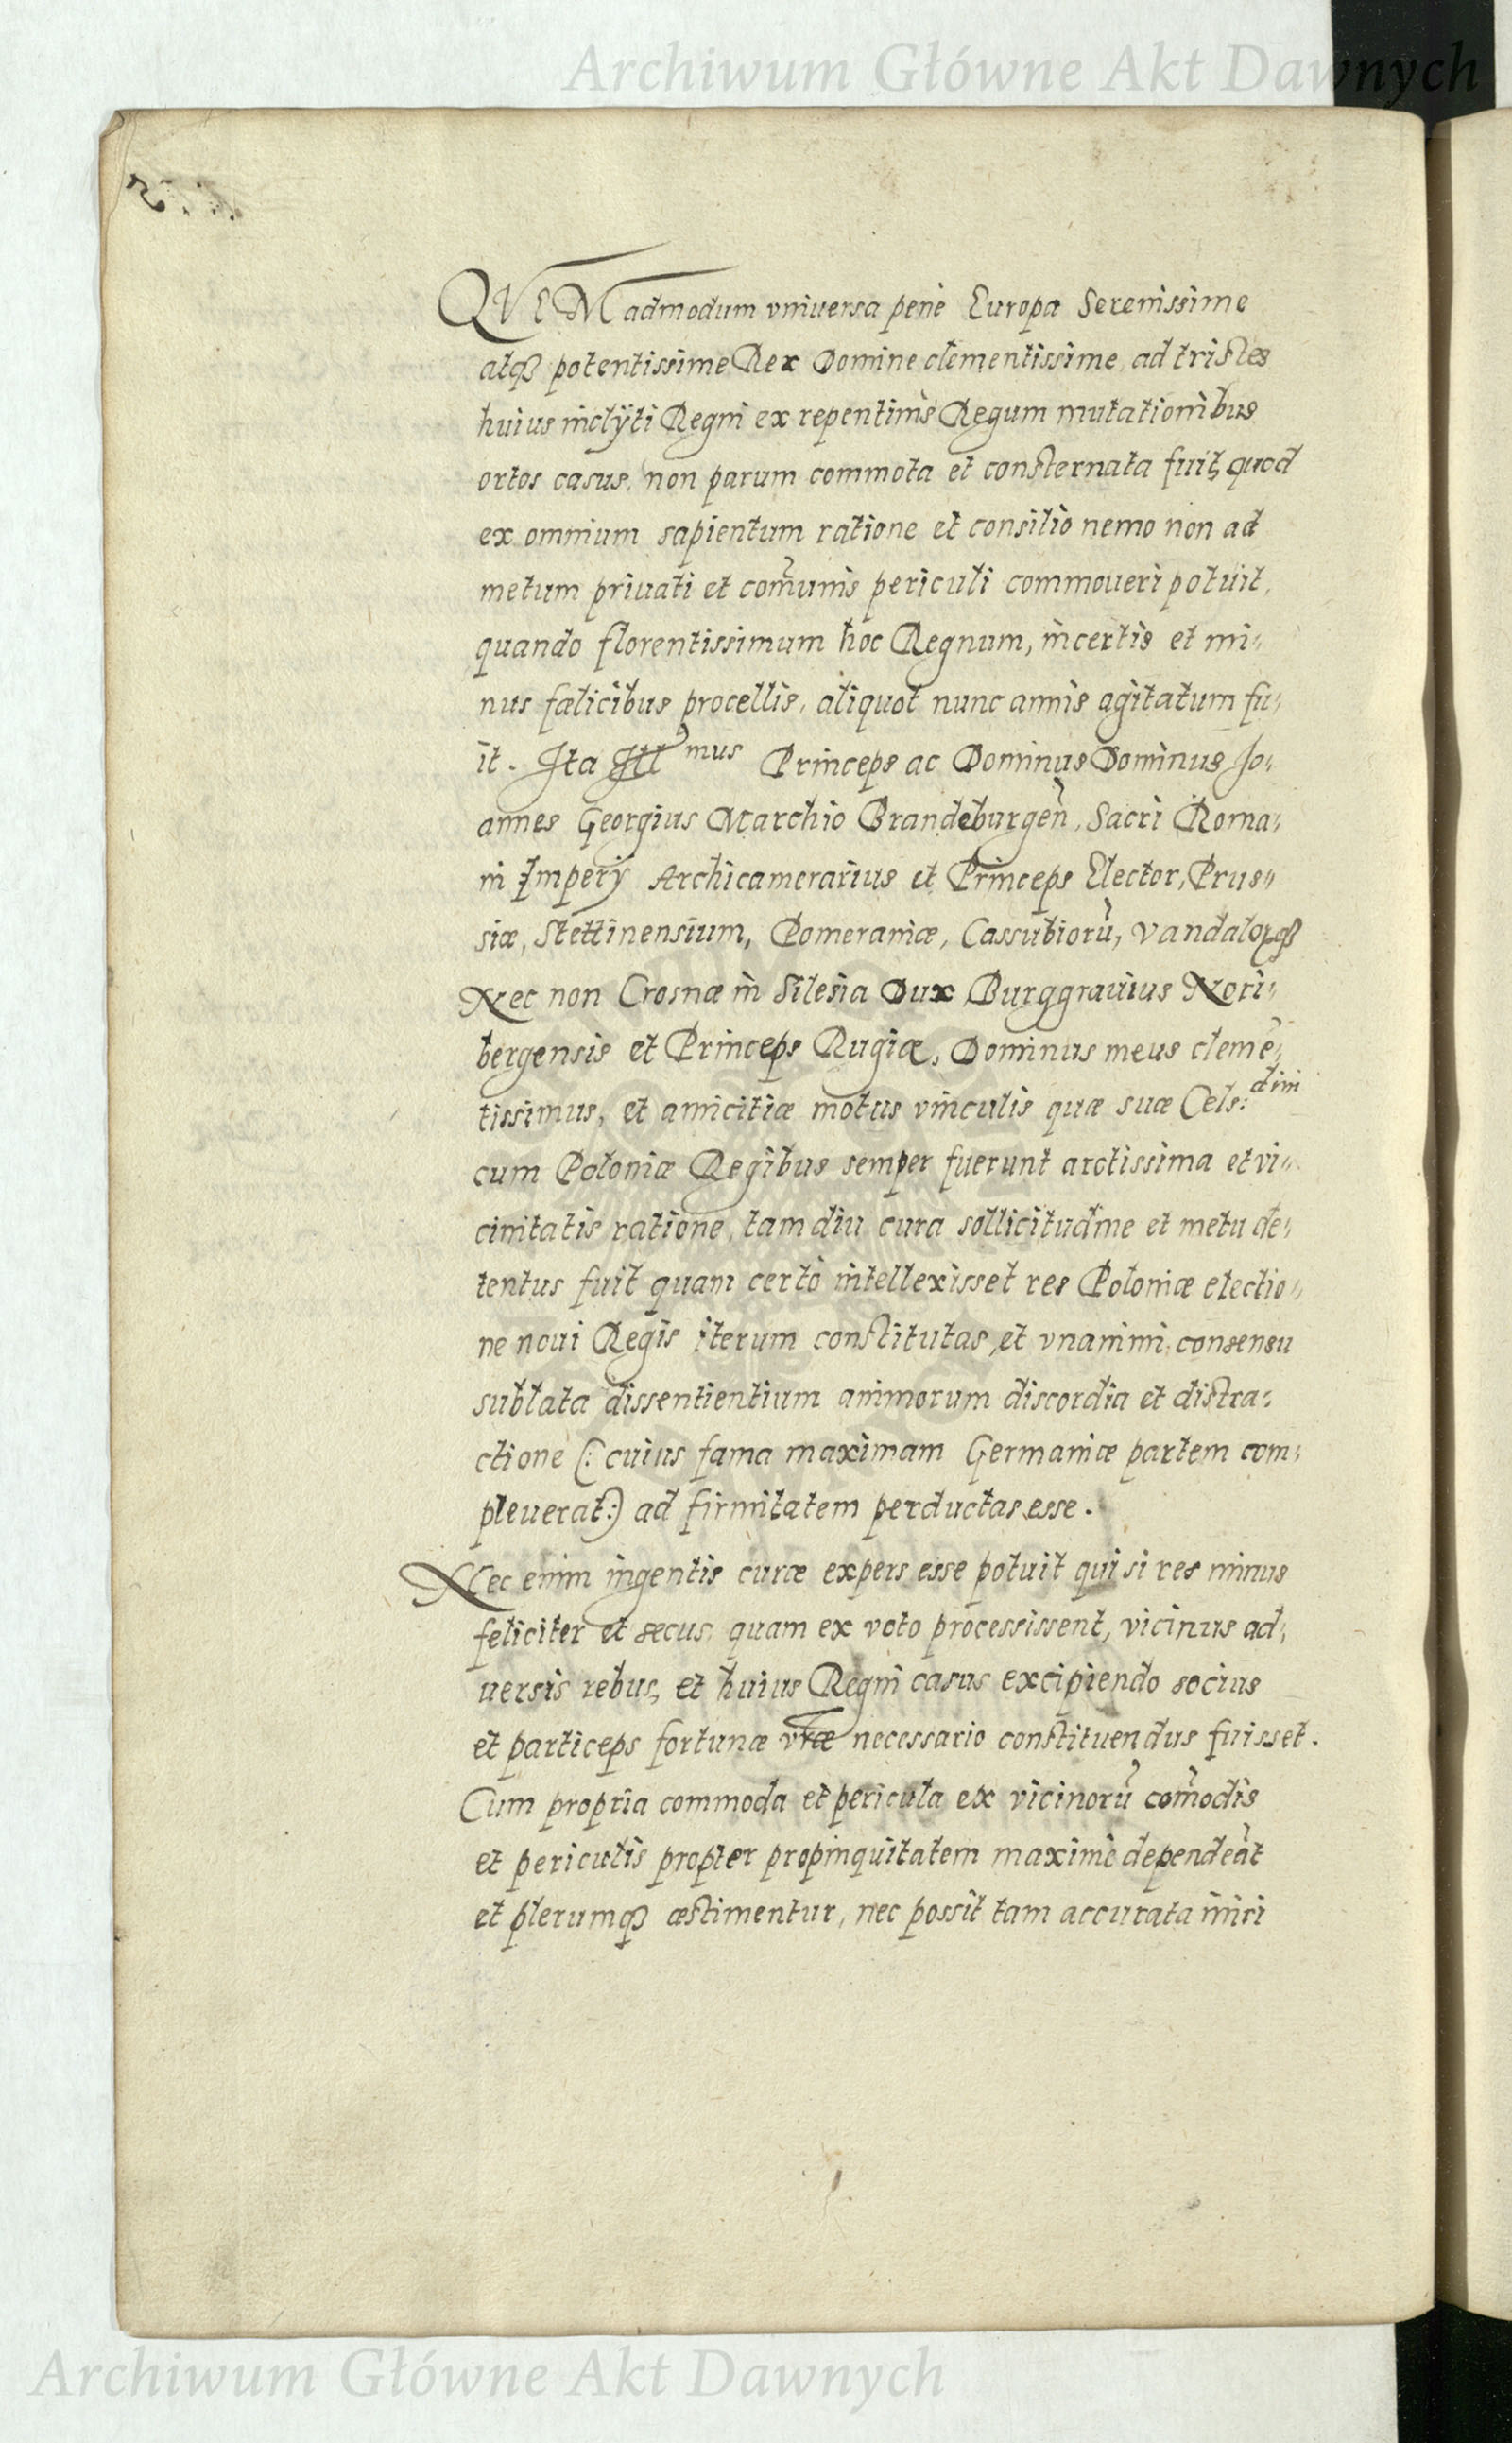 Archiwum Główne Akt Dawnych
QVEMadmodum vniuersa penè Europa Serenissime
atqꝫ potentissime Rex Domine clementissime, ad tristes
huius inclÿti Regni ex repentinis Regum mutationibus
ortos casus, non parum commota et consternata fuit, quod
ex omnium sapientum ratione et consilio nemo non ad
metum priuati et com̃unis periculi commoueri potuit,
quando florentissimum hoc Regnum, incertis et mi-
nus fælicibus procellis, aliquot nunc annis agitatum fu-
it. Ita Illmus Princeps ac Dominus Dominus Jo-
annes Georgius Marchio Brandeburgeñ, Sacri Roma-
ni Imperÿ Archicamerarius et Princeps Elector, Prus-
siæ, Stettinensium, Pomeraniæ, Cassubiorũ, Vandaloꝝqꝫ
Nec non Crosnæ in Silesia Dux Burggrauius Nori-
bergensis et Princeps Rugiæ, Dominus meus clemẽ-
tissimus, et amicitiæ motus vinculis quæ suæ Cels:dini
cum Poloniæ Regibus semper fuerunt arctissima et vi-
cinitatis ratione, tam diu cura sollicitudine et metu de-
tentus fuit quam certò intellexisset res Poloniæ electio-
ne noui Regis iterum constitutas, et vnanimi consensu
sublata dissentientium animorum discordia et distra-
ctione (: cuius fama maximam Germaniæ partem com-
pleuerat :) ad firmitatem perductas esse.
Nec enim ingentis curæ expers esse potuit qui si res minus
feliciter et secus, quam ex voto processissent, vicinus ad-
uersis rebus, et huius Regni casus excipiendo socius
et particeps fortunæ vr̃æ necessario constituendus fuisset.
Cum propria commoda et pericula ex vicinorũ com̃odis
et periculis propter propinquitatem maximè dependeãt
et plerumqꝫ æstimentur, nec possit tam accurata iniri
Archiwum Główne Akt Dawnych